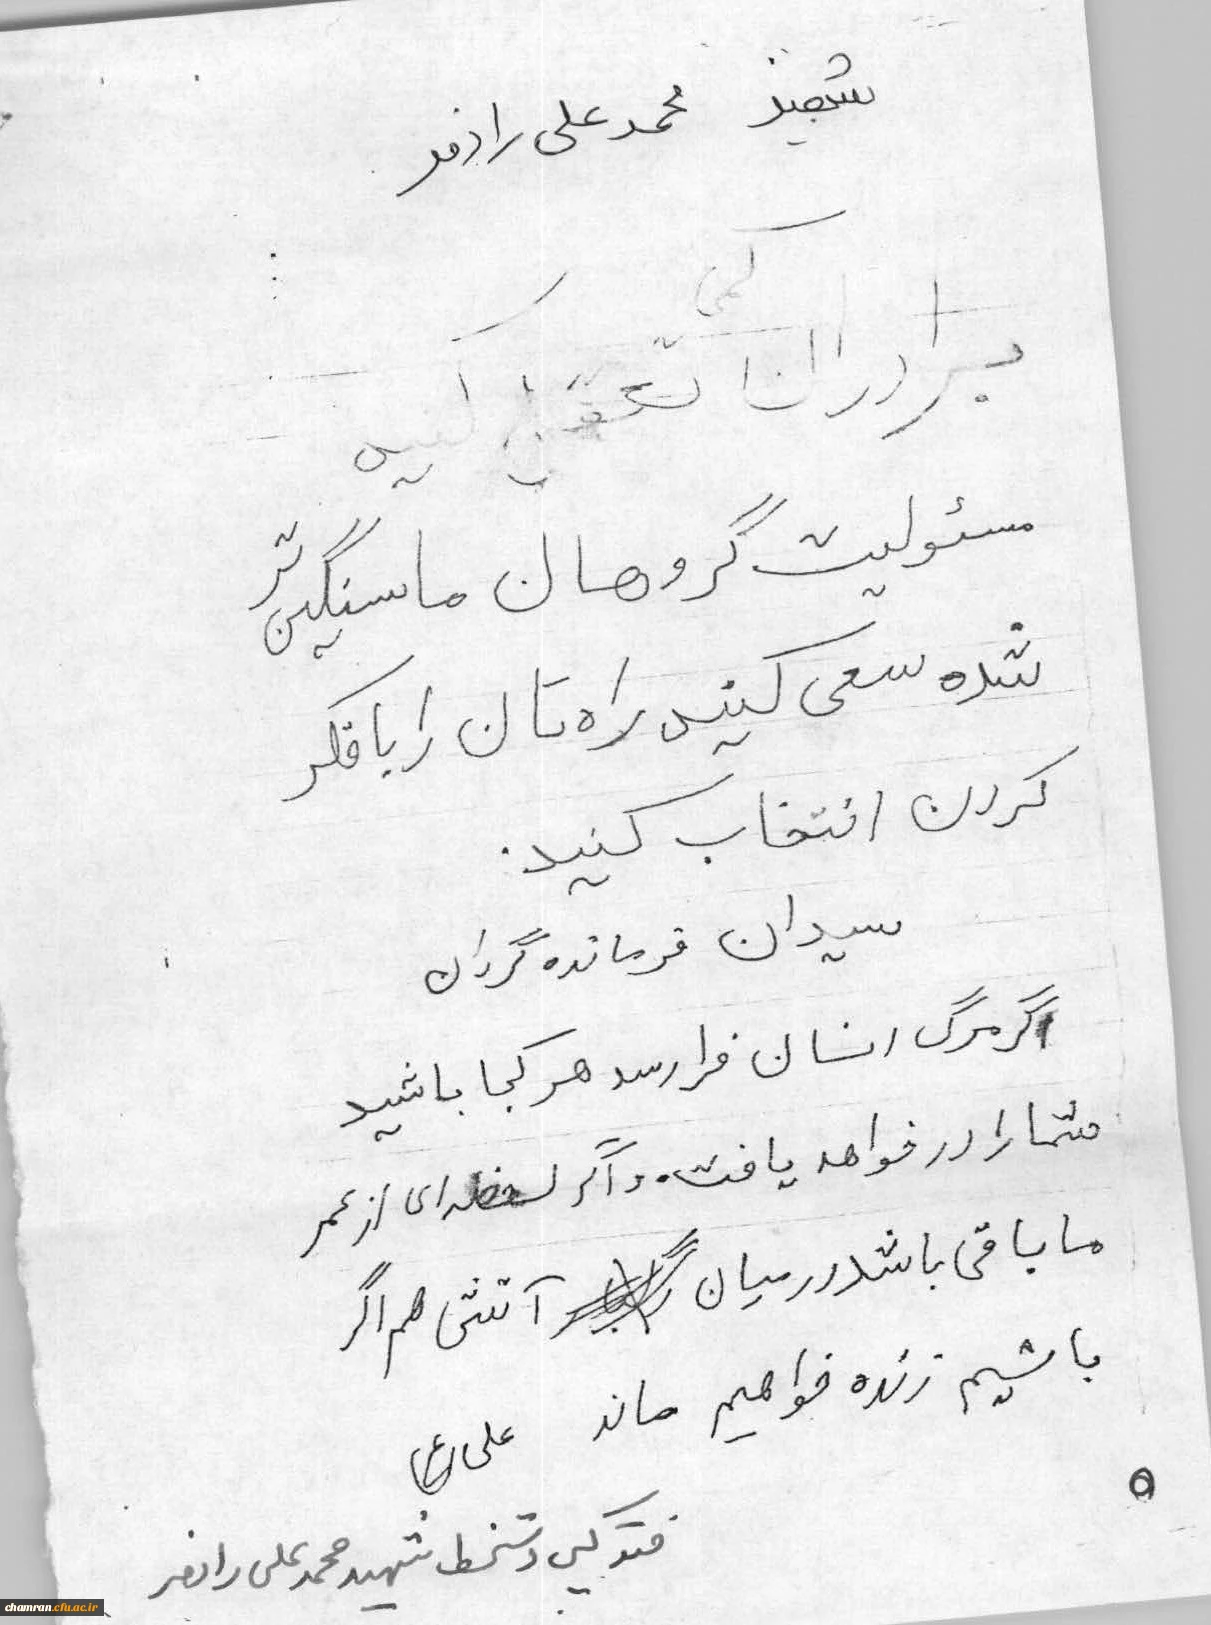 شهید محمد علی رادفر
کمی
برادران تعقل کنید
مسئولیت گروهان ما سنگین تر
شده سعی کنید راه تان را با فکر
کردن انتخاب کنید.
سیدان فرمانده گردان
اگر مرگ انسان فرا رسد هر کجا باشید
شما را در خواهد یافت. و اگر لحظه ای از عمر
ما باقی باشد در میان آتش هم اگر
باشیم زنده خواهیم ماند علی (ع)
فتوکپی دستخط شهید محمد علی رادفر
۵
chamran.cfu.ac.ir